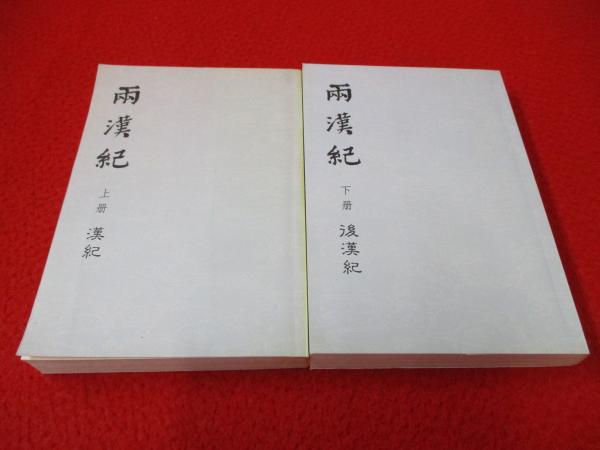 兩漢紀
上册
漢紀
兩漢紀
下册
後漢紀